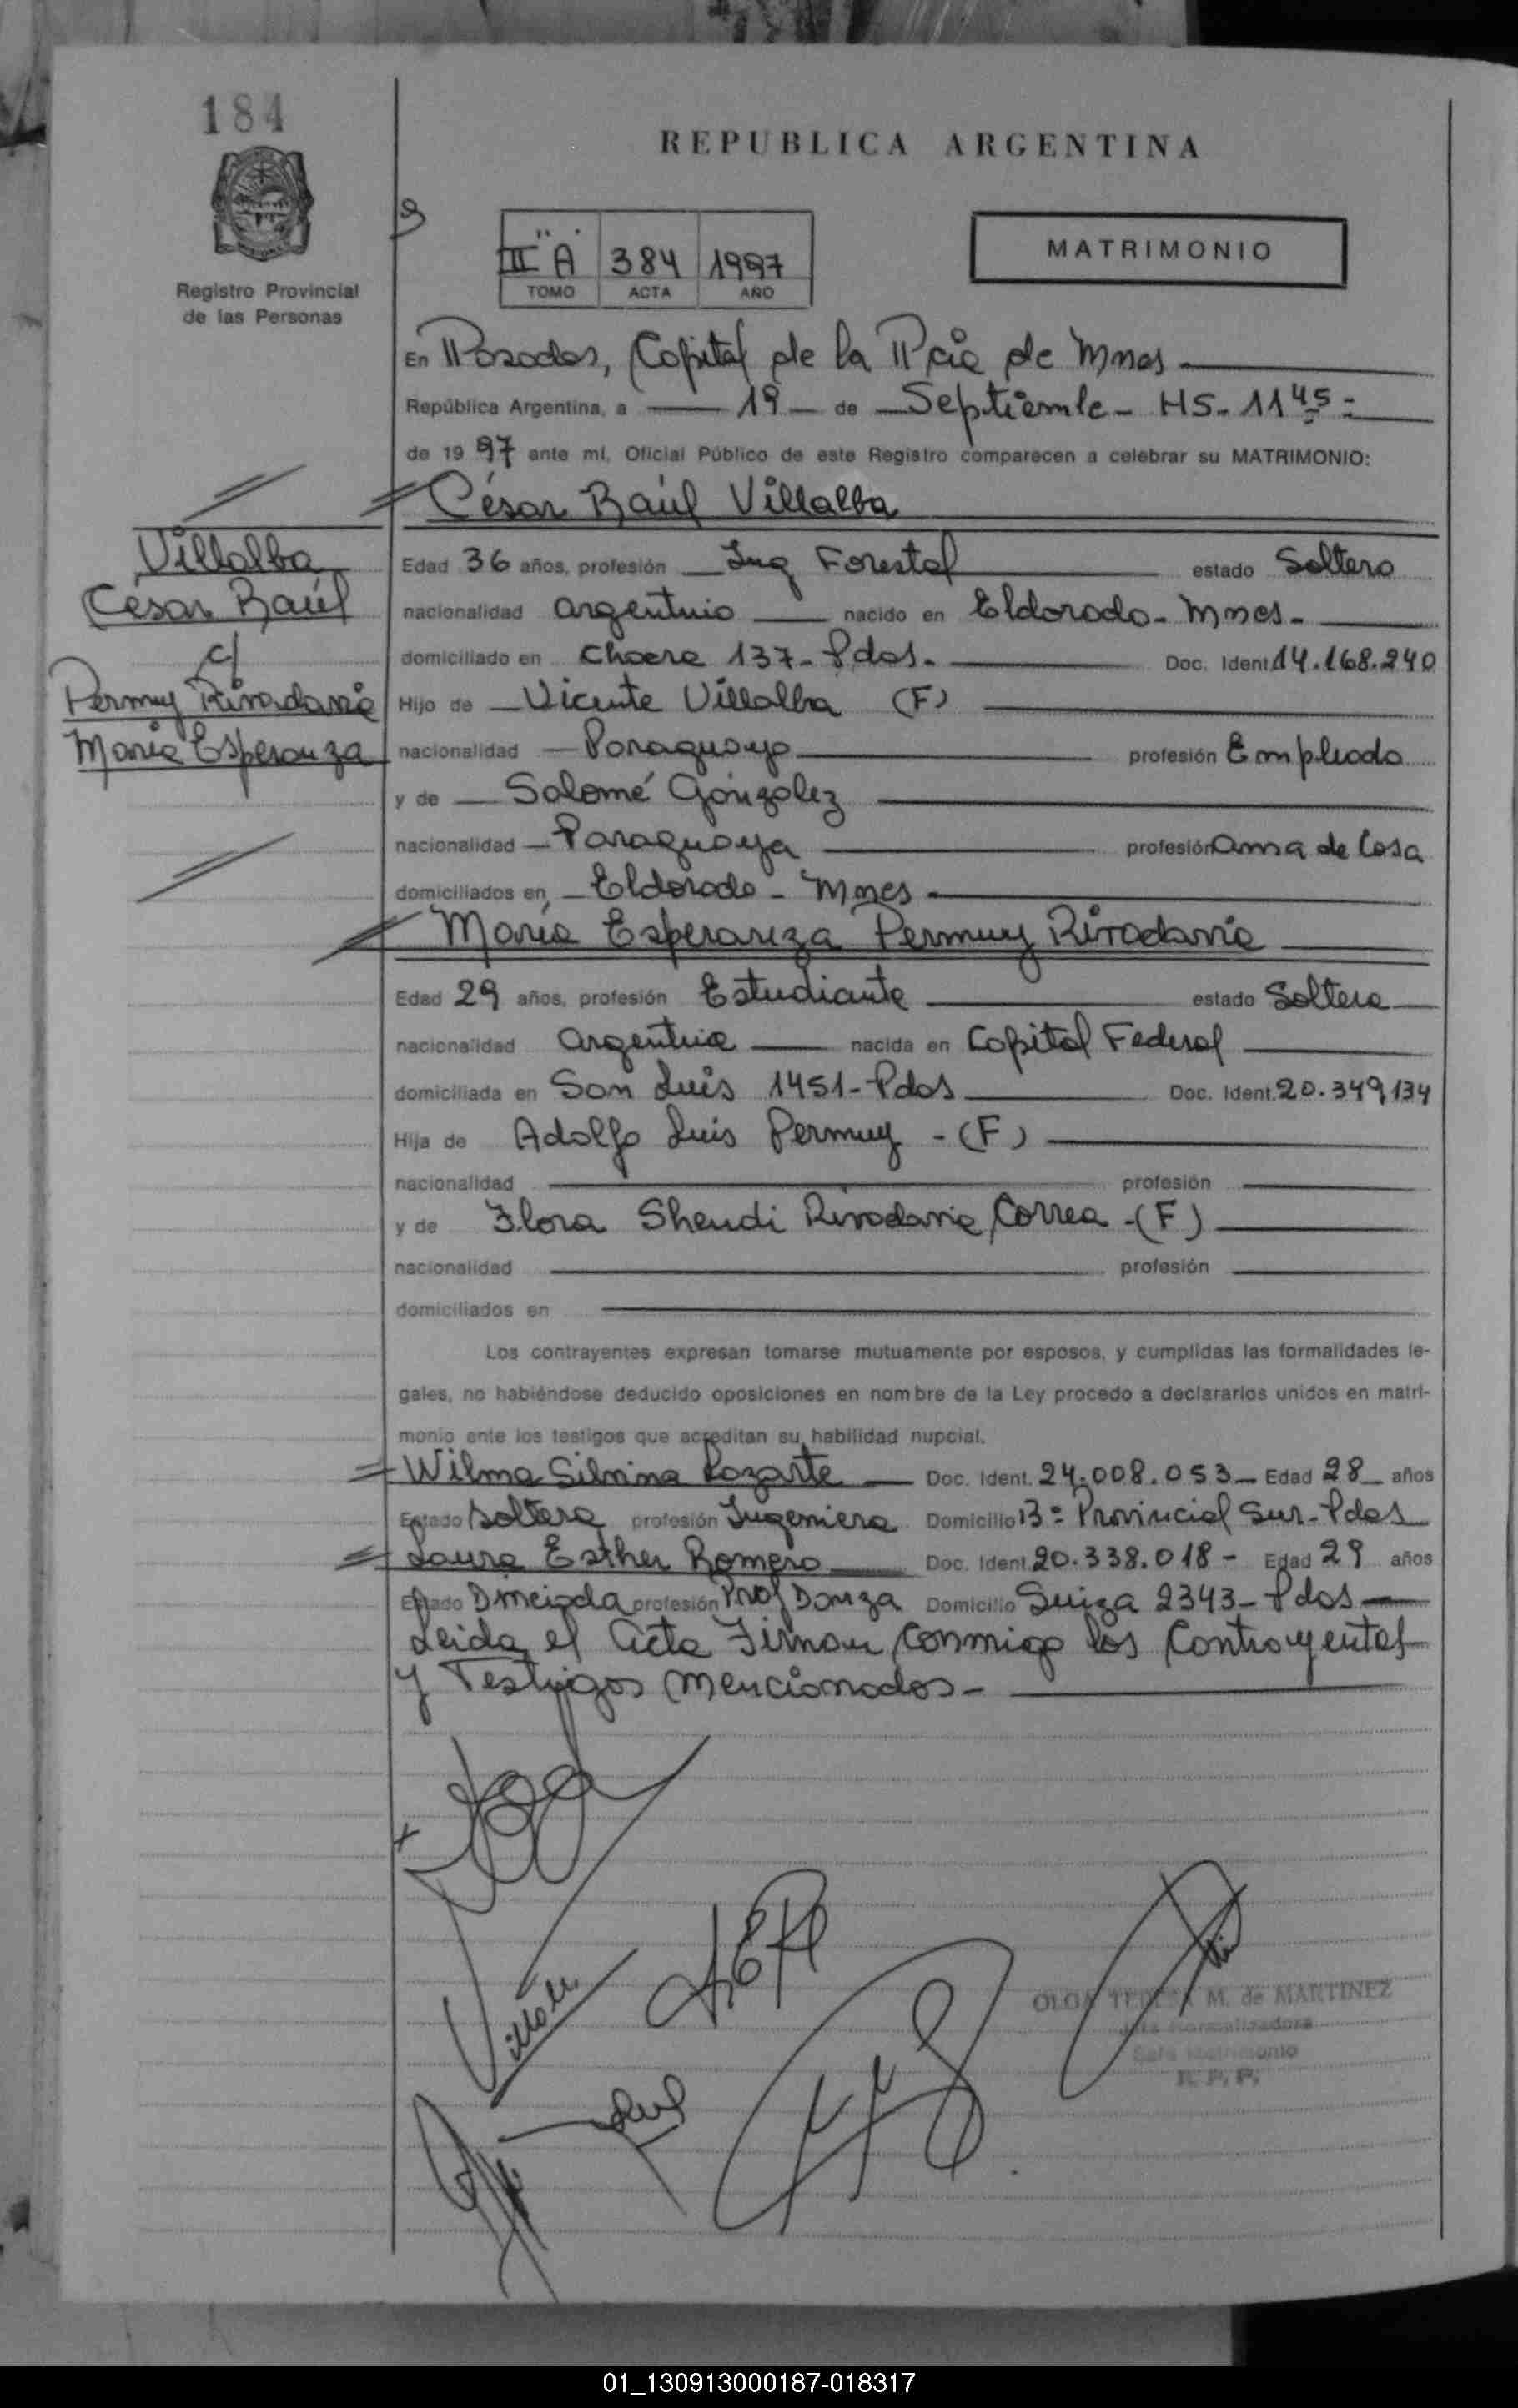 184
REPUBLICA ARGENTINA
Registro Provincial
de las Personas
III "A" 384 1997
TOMO ACTA AÑO
MATRIMONIO
En Posadas, Capital de la Pcia de Mnes
República Argentina, a 19 de Septiembre - HS. 11 45 -
de 19 97 ante mí, Oficial Público de este Registro comparecen a celebrar su MATRIMONIO:
César Raúl Villalba
Villalba
César Raúl
c/
Permuy Rivadavia
María Esperanza
Edad 36 años, profesión Ing Forestal estado Soltero
nacionalidad argentino nacido en Eldorado - Mnes -
domiciliado en 137 - Pdas. Doc. Ident 14.168.240
Hijo de Vicente Villalba (F)
nacionalidad Paraguayo profesión Empleado
y de Salomé González
nacionalidad Paraguaya profesión ama de Casa
domiciliados en Eldorado - Mnes
María Esperanza Permuy Rivadavia
Edad 29 años, profesión Estudiante estado Soltera
nacionalidad argentina nacida en Capital Federal
domiciliada en San Luis 1451 - Pdas Doc. Ident. 20.349,134
Hija de Adolfo Luis Permuy - (F)
nacionalidad profesión
y de Flora Shendi Rivadavia Correa - (F)
nacionalidad profesión
domiciliados en
Los contrayentes expresan tomarse mutuamente por esposos, y cumplidas las formalidades le-
gales, no habiéndose deducido oposiciones en nombre de la Ley procedo a declararlos unidos en matri-
monio ante los testigos que acreditan su habilidad nupcial.
Wilma Silvina Doc. Ident. 24.008.053 - Edad 28 años
Estado Soltera profesión Ingeniera Domicilio B= Provincial Sur - Pdas
Laura Esther Romero Doc. Ident. 20.338.018 - Edad 29 años
Estado profesión Prof Danza Domicilio Suiza 2343 - Pdas
Leida el acta Firman conmigo los Contrayentes
y Testigos mencionados -
OLGA TERESA M. de MARTINEZ
R. P. P.
01_130913000187-018317